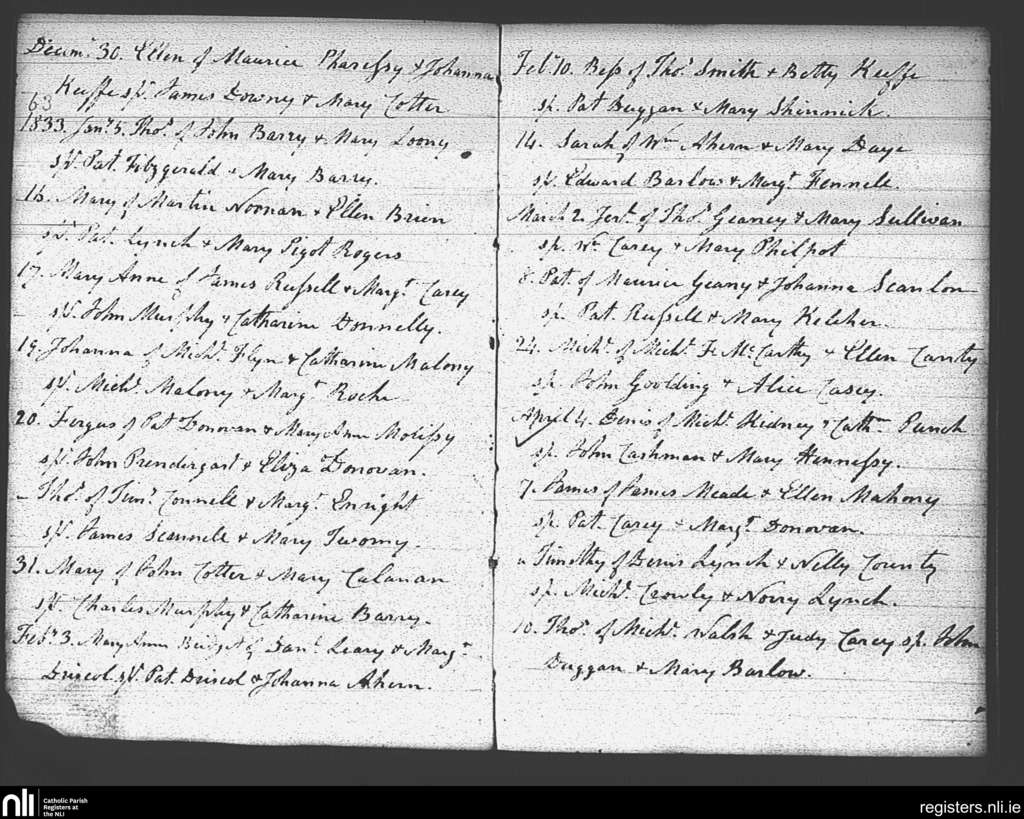 Decemr. 30. Ellen of Maurice Pharessy & Johanna
Keeffe sp. James Downy & Mary Cotter
63
1833. Janr. 5. Thos. of John Barry & Mary Loony
sp. Pat. Fitzgerald & Mary Barry.
16. Mary of Martin Noonan & Ellen Brien
sp. Pat. Lynch & Mary Pigot Rogers
17. Mary Anne of James Russell & Margt. Carey
sp. John Murphy & Catharine Donnelly.
19. Johanna of Michl. Flyn & Catharine Malony
sp. Michl. Malony & Margt. Roche
20. Fergus of Pat Donovan & Mary Ann Morissy
sp. John Prendergast & Eliza Donovan.
_ Thos. of Connell & Margt. Enright
sp. James Scannell & Mary Twomy.
31. Mary of John Cotter & Mary Calanan
sp. Charles Murphy & Catharine Barry.
Febr. 3. Mary Ann Bridget of Danl. Leary & Margt.
Driscol sp. Pat. Driscol & Johanna Ahern.
Feb. 10. Bess of Thos. Smith & Betty Keeffe
sp. Pat Duggan & Mary Shinnick.
14. Sarah of Wm Ahern & Mary Daye
sp. Edward Barlow & Margt. Fennell.
March 2. of Thos. Geaney & Mary Sullivan
sp. Wm. Carey & Mary Philpot
8. Pat. of Maurice Geany & Johanna Scanlon
sp. Pat. Russell & Mary Keleher.
24. Michl. of Michl. McCarthy & Ellen Canty
sp. John Goolding & Alice Casey.
April 4. Denis of Michl. Kidney & Cathn Punch
sp. John Cashman & Mary Hennessy.
7. James of James Meade & Ellen Mahony
sp. Pat. Carey & Margt. Donovan.
" Timothy of Denis Lynch & Nelly County
sp. Michl. Crowly & Nory Lynch.
10. Thos. of Michl. Walsh & Judy Carey sp. John
Duggan & Mary Barlow.
nli
Catholic Parish
Registers at
the NLI
registers.nli.ie